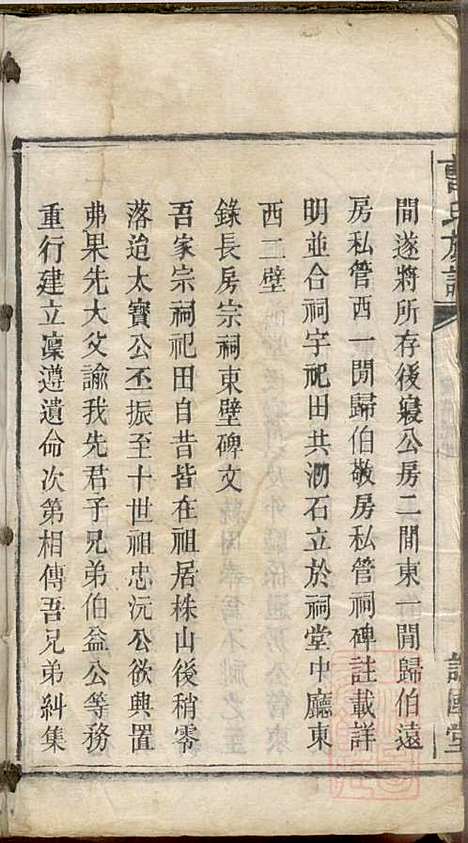 氏族譜
間遂將所存後寢公房二間東一間歸伯遠
房私管西一間歸伯敬房私管祠碑註載詳
明並合祠宇祀田共泐石立於祠堂中廳東
西二壁
錄長房宗祠東壁碑文
吾家宗祠祀田自昔皆在祖居株山後稍零
落迨太寶公丕振至十世祖忠沅公欲興置
弗果先大父諭我先君子兄弟伯益公等務
重行建立凜遵遺命次第相傳吾兄弟糾集
國堂